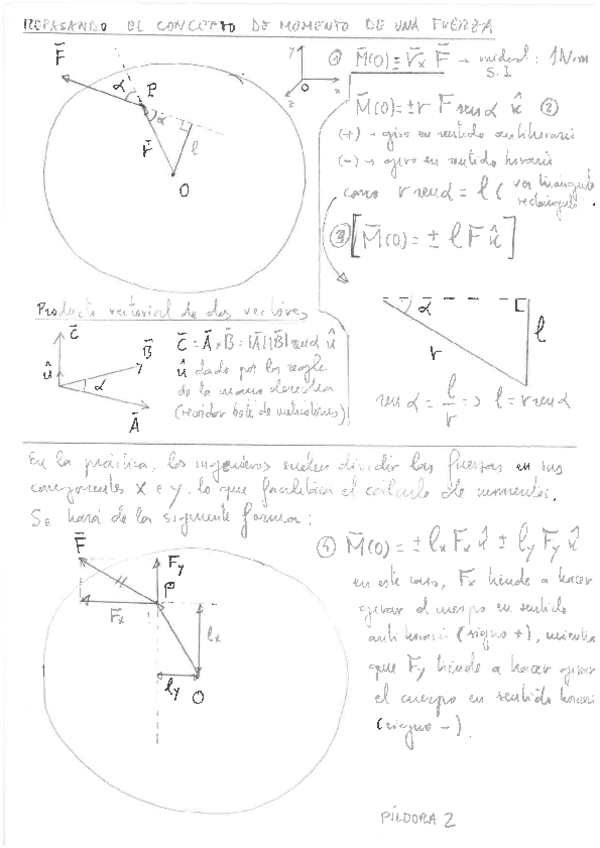 REPASANDO EL CONCEPTO DE MOMENTO DE UNA FUERZA
F̄
α
P
α
r̄
l
O
y
x
z
O
① M̄(O) = r̄ x F̄ → unidad: 1 N·m
S.I
M̄(O) = ± r F sen α k̂ ②
(+) → giro en sentido antihorario
(-) → giro en sentido horario
como r sen α = l (ver triángulo
rectángulo
③ [M̄(O) = ± l F k̂]
α
r
l
sen α = l/r => l = r sen α
Producto vectorial de dos vectores
C̄
û
B̄
α
Ā
C̄ = Ā x B̄ = |Ā| |B̄| sen α û
û dado por la regla
de la mano derecha
En la práctica, los ingenieros suelen dividir las fuerzas en sus
componentes X e Y, lo que facilitará el cálculo de momentos.
Se hará de la siguiente forma:
F̄
Fy
P
Fx
lx
ly
O
④ M̄(O) = ± lx Fx k̂ ± ly Fy k̂
en este caso, Fx tiende a hacer
girar el cuerpo en sentido
antihorario (signo +), mientras
que Fy tiende a hacer girar
el cuerpo en sentido horario
(signo -).
PÍLDORA 2